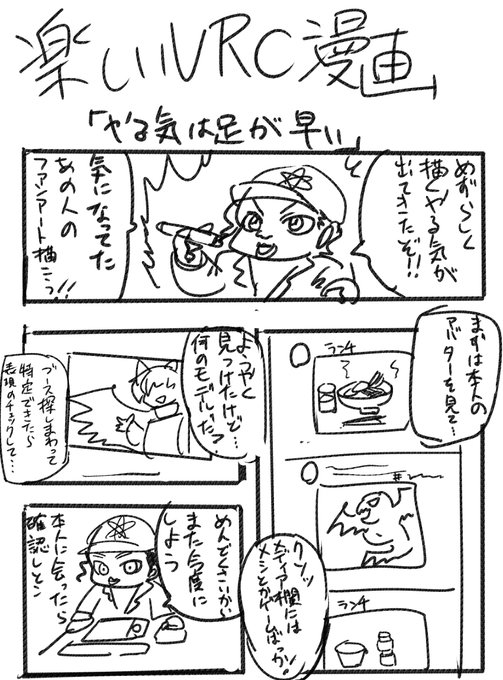 楽しいVRC漫画
「やる気は足が早い」
めずらしく
描くやる気が
出てきたぞ!!
気になってた
あの人の
ファンアート描こっ!!
まずは本人の
アバターを見て…
ランチ
クソッ
メディア欄には
メシとかゲームばっか!
ランチ
ようやく
見つけたけど…
何のモデルだ?
ブース探しまわって
特定できたら
表現のチェックして…
めんどくさいから
また今度に
しよっ
本人に会ったら
確認しとこ